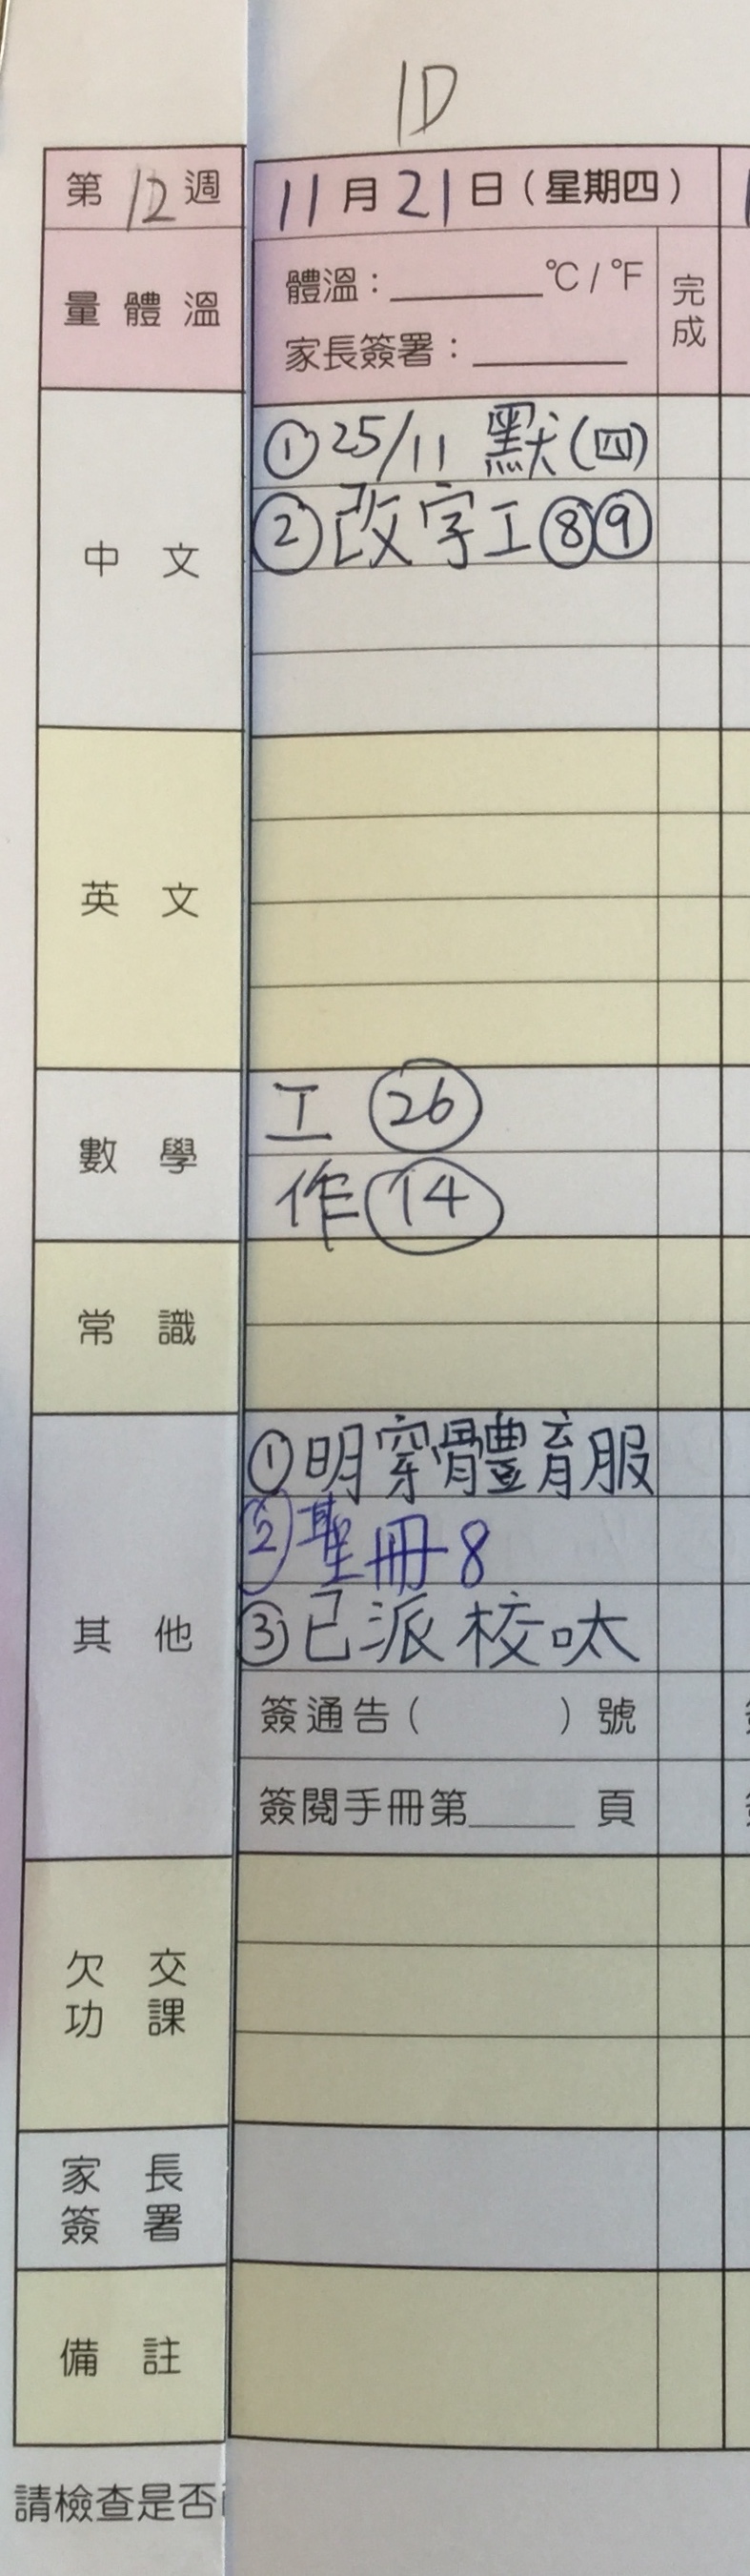 1D
第12週 11月21日(星期四)
量體溫 體溫：______℃/℉ 完成
家長簽署：______
中文 ①25/11 默(四)
②改字工⑧⑨
英文
數學 工㉖
作⑭
常識
其他 ①明穿體育服
②聖冊8
③已派校呔
簽通告( )號
簽閱手冊第____頁
欠交功課
家長簽署
備註
請檢查是否